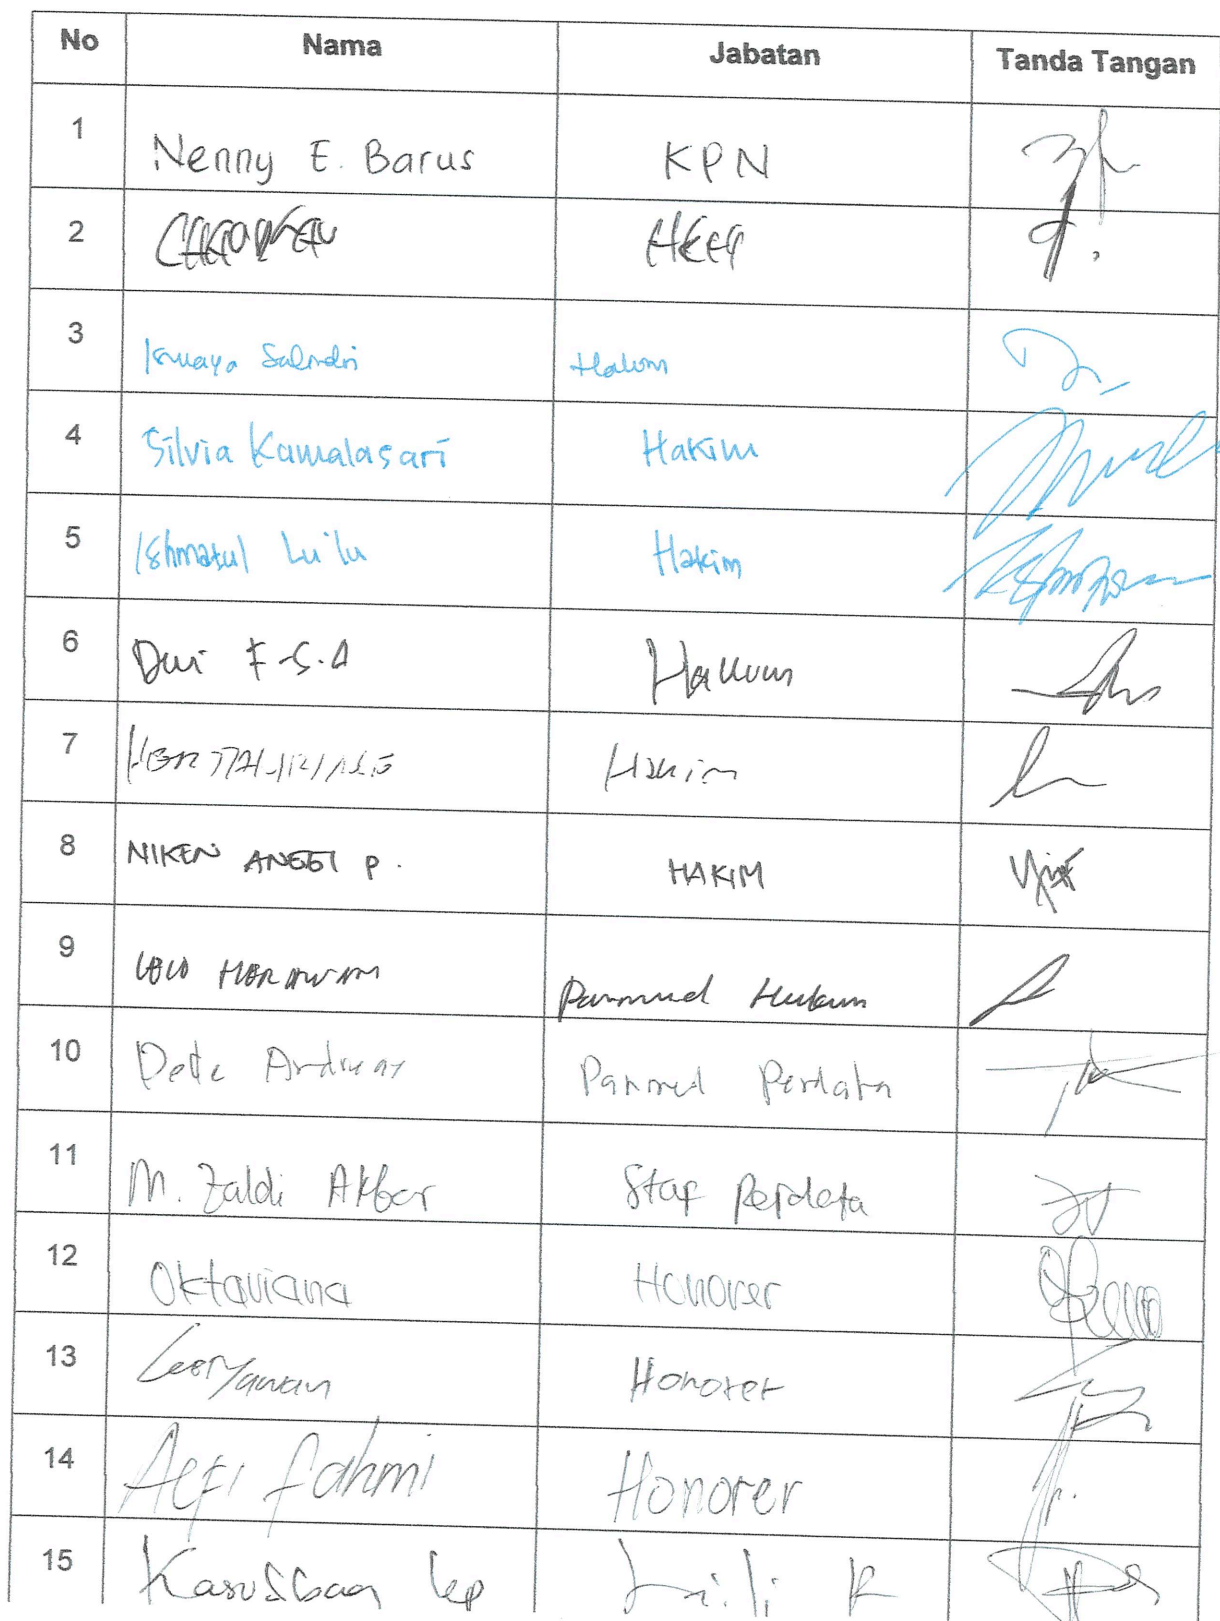 No Nama Jabatan Tanda Tangan
1 Nenny E. Barus KPN
2
3 Hakim
4 Silvia Kamalasari Hakim
5 Ishmatul Lu'lu Hakim
6 Dwi F.S.A Hakim
7 Hakim
8 NIKEN ANGGI P. HAKIM
9 Panmud Hukum
10 Dede Panmud Perdata
11 M. Zaldi Akbar Staf Perdata
12 Oktaviana Honorer
13 Leoryawan Honorer
14 Alfi fahmi Honorer
15 Kasubbag kep Lili R